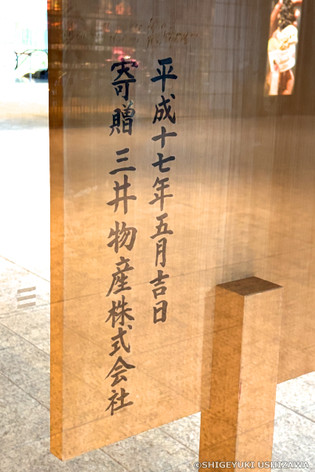 平成十七年五月吉日
寄贈 三井物産株式会社
©SHIGEYUKI USHIZAWA